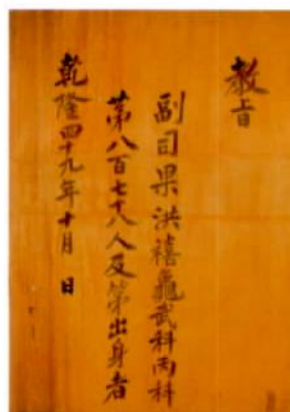 教旨
副司果洪禧龜武科丙科
第八百七十八人及第出身者
乾隆四十九年十月 日